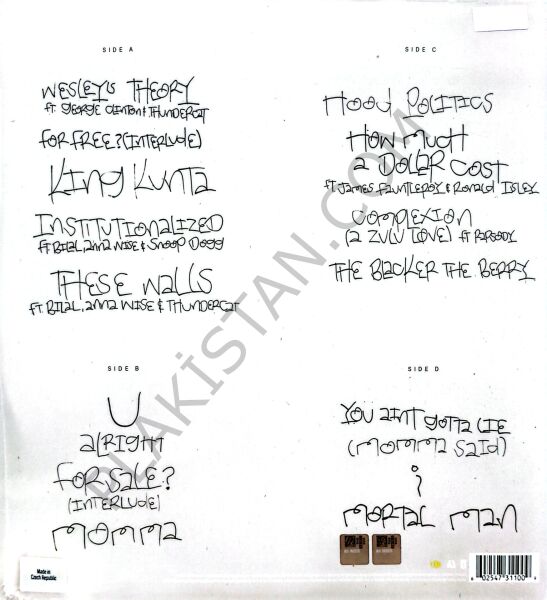 SIDE A
WESLEY'S THEORY
ft. GEORGE CLINTON & THUNDERCAT
FOR FREE? (INTERLUDE)
KING KUNTA
INSTITUTIONALIZED
ft BILAL, anna WISE & SnOOP DOGG
THESE WALLS
ft. BILAL, anna WISE & THUNDERCAT
SIDE B
U
aLRIGHT
FOR SALE?
(INTERLUDE)
MOMMA
SIDE C
HOOD POLITICS
HOW MUCH
a DOLLAR COST
ft JAMES FAUNTLEROY & RONALD ISLEY
COMPLEXION
(a ZULU LOVE) ft RAPSODY
THE BLACKER THE BERRY
SIDE D
YOU AINT GOTTA LIE
(MOMMA SAID)
i
MORTAL MAN
Made in
Czech Republic
6 02547 31100 9
PLAKİSTAN.COM